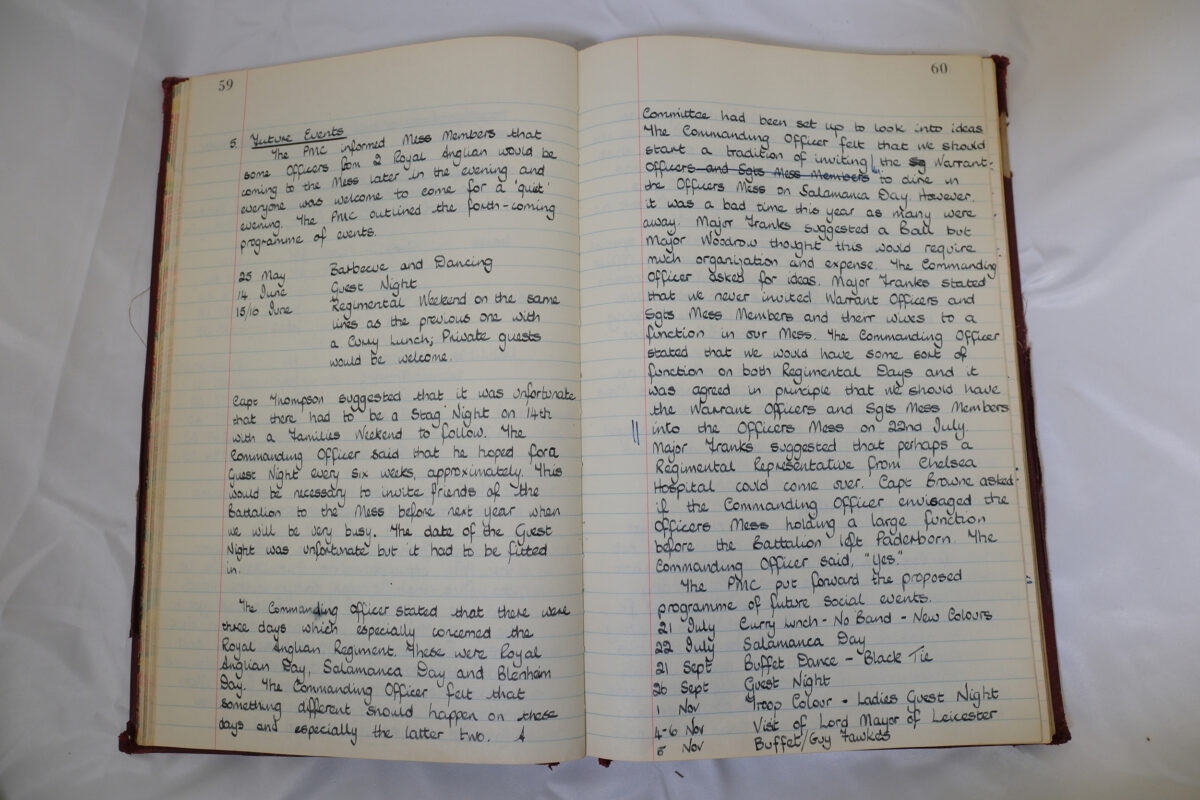 59
5. Future Events
The PMC informed Mess Members that
some Officers from 2 Royal Anglian would be
coming to the Mess later in the evening and
everyone was welcome to come for a 'quiet'
evening. The PMC outlined the forth-coming
programme of events.
25 May Barbecue and Dancing
14 June Guest Night
15/16 June Regimental Weekend on the same
lines as the previous one with
a Curry Lunch; Private guests
would be welcome.
Capt Thompson suggested that it was unfortunate
that there had to be a Stag Night on 14th
with a Families Weekend to follow. The
Commanding Officer said that he hoped for a
Guest Night every six weeks, approximately. This
would be necessary to invite friends of the
Battalion to the Mess before next year when
we will be very busy. The date of the Guest
Night was unfortunate but it had to be fitted
in.
The Commanding Officer stated that there were
three days which especially concerned the
Royal Anglian Regiment. These were Royal
Anglian Day, Salamanca Day and Blenheim
Day. The Commanding Officer felt that
something different should happen on these
days and especially the latter two. A
60
Committee had been set up to look into ideas
The Commanding Officer felt that we should
start a tradition of inviting the Sg Warrant
Officers and Sgts Mess Members to dine in
the Officers Mess on Salamanca Day. However,
it was a bad time this year as many were
away. Major Franks suggested a Ball but
Major Woodrow thought this would require
much organisation and expense. The Commanding
Officer asked for ideas. Major Franks stated
that we never invited Warrant Officers and
Sgts Mess Members and their wives to a
function in our Mess. The Commanding Officer
stated that we would have some sort of
function on both Regimental Days and it
was agreed in principle that we should have
the Warrant Officers and Sgts Mess Members
into the Officers Mess on 22nd July.
Major Franks suggested that perhaps a
Regimental Representative from Chelsea
Hospital could come over. Capt Browne asked
if the Commanding Officer envisaged the
Officers Mess holding a large function
before the Battalion left Paderborn. The
Commanding Officer said, "Yes."
The PMC put forward the proposed
programme of future social events.
21 July Curry Lunch - No Band - New Colours
22 July Salamanca Day
21 Sept Buffet Dance - Black Tie
26 Sept Guest Night
1 Nov Troop Colour - Ladies Guest Night
4-6 Nov Visit of Lord Mayor of Leicester
5 Nov Buffet/Guy Fawkes